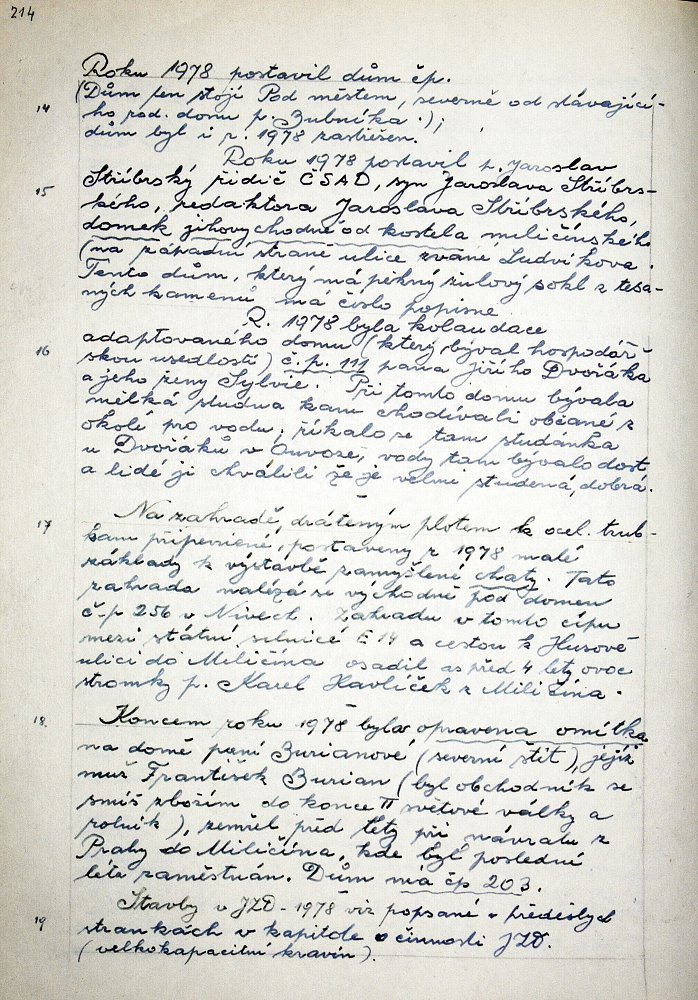 214
Roku 1978 postavil dům čp.
14 (Dům ten stojí Pod městem, severně od stávající-
ho rod. domu p. Zubníka.);
dům byl i r. 1978 zastřešen.
Roku 1978 postavil p. Jaroslav
15 Stříbrský řidič ČSAD, syn Jaroslava Stříbrs-
kého, redaktora Jaroslava Stříbrského,
domek jihovychodně od kostela miličínského
(na západní straně ulice zvané, Ludvíkova.
Tento dům, který má pěkný žulový sokl z tesa-
ných kamenů má číslo popisné
R. 1978 byla kolaudace
16 adaptovaného domu (který býval hospodář-
skou usedlostí) č. p. 111 pana Jiřího Dvořáka
a jeho ženy Sylvie. Při tomto domu bývala
mělká studna kam chodívali občané z
okolí pro vodu; říkalo se tam studánka
u Dvořáků v Ouvoze; vody tam bývalo dost
a lidé ji chválili že je velmi studená, dobrá.
17 Na zahradě, drátěným plotem k ocel. trub-
kám připevněné, postaveny r 1978 malé
základy k výstavbě zamýšlené chaty. Tato
zahrada nalézá se východně pod domem
č-p 256 v Nivech. Zahradu v tomto cípu
mezi státní silnicí E 14 a cestou k Husově
ulici do Miličína osadil as před 4 lety ovoc
stromky p. Karel Havlíček z Miličína.
18. Koncem roku 1978 byla opravena omítka
na domě paní Burianové, (severní štít), jejíž
muž František Burian (byl obchodník se
smíš. zbožím do konce II světové války a
rolník), zemřel před lety při návratu z
Prahy do Miličína, kde byl poslední
léta zaměstnán. Dům má čp 203.
19 Stavby v JZD - 1978 viz popsané v předešlých
stránkách v kapitole o činnosti JZD.
(velkokapacitní kravín).